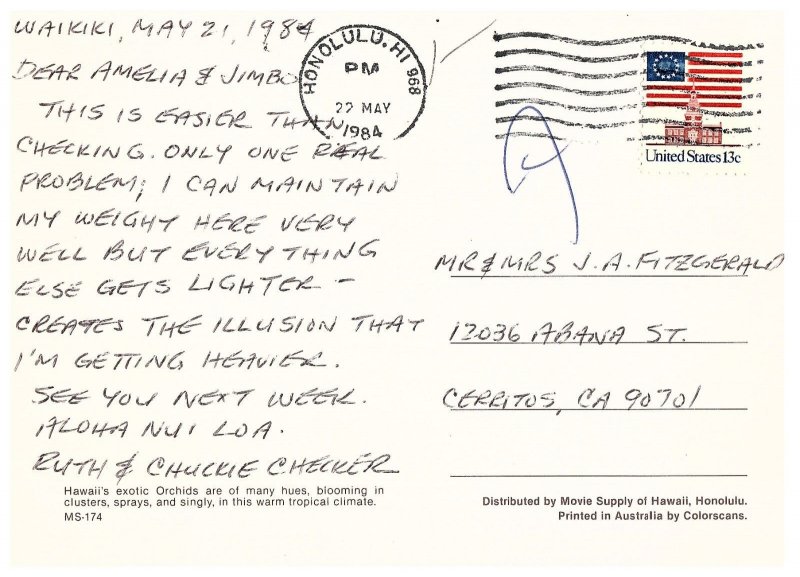 WAIKIKI, MAY 21, 1984
DEAR AMELIA & JIMBO
THIS IS EASIER THAN
CHECKING. ONLY ONE REAL
PROBLEM; I CAN MAINTAIN
MY WEIGHT HERE VERY
WELL BUT EVERYTHING
ELSE GETS LIGHTER –
CREATES THE ILLUSION THAT
I'M GETTING HEAVIER.
SEE YOU NEXT WEEK.
ALOHA NUI LOA.
RUTH & CHUCKIE CHECKER
Hawaii's exotic Orchids are of many hues, blooming in
clusters, sprays, and singly, in this warm tropical climate.
MS-174
HONOLULU, HI 968
PM
22 MAY
1984
United States 13c
MR & MRS J. A. FITZGERALD
12036 ABANA ST.
CERRITOS, CA 90701
Distributed by Movie Supply of Hawaii, Honolulu.
Printed in Australia by Colorscans.